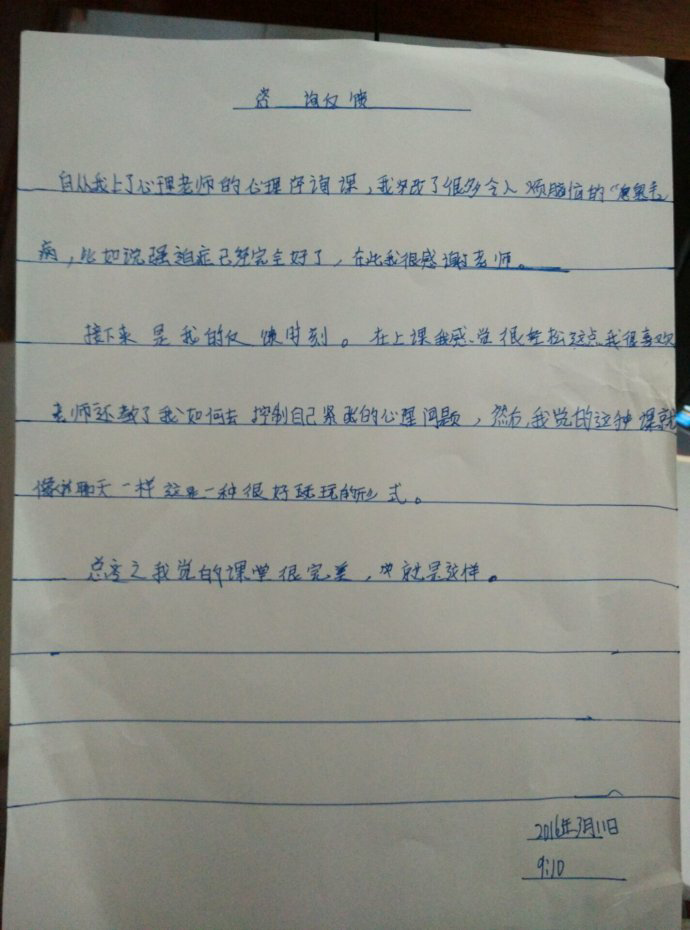 咨 询仅馈
自从我上了心理老师的心理咨询课，我改了很多令人烦脑的"坏毛
病，比如说强迫症已经完全好了，在此我很感谢老师。
接下来是我的仅馈时刻。在上课我感觉很轻松这点我很喜欢
老师还教了我如何去控制自己紧张的心理问题，然后，我觉的这种课就
像聊天一样这是一种很好的形式。
总言之我觉的课堂很完美，也就是这样。
2016年3月11日
9:10